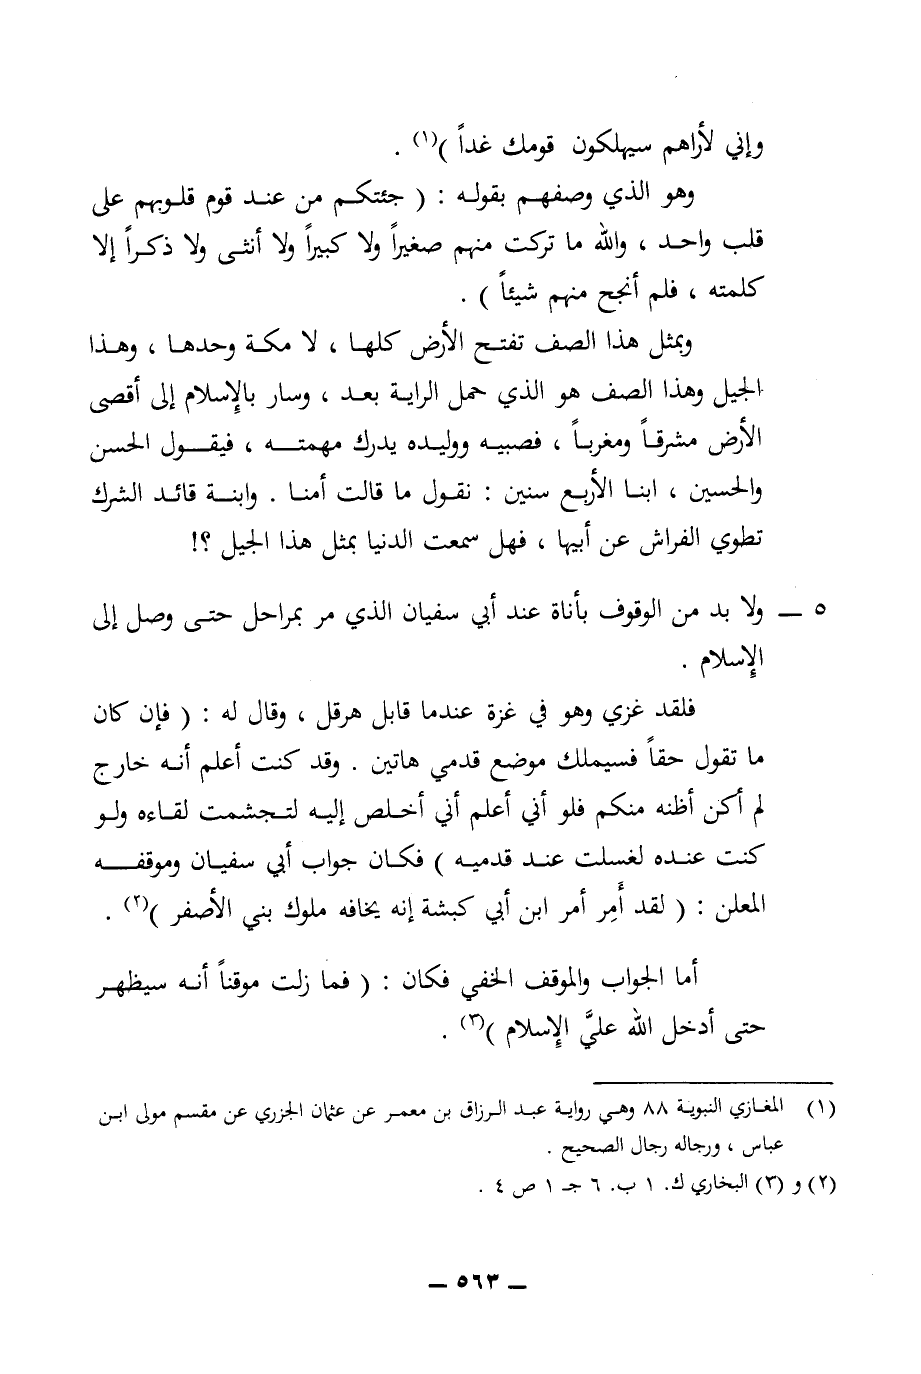 وإني لأراهم سيهلكون قومك غداً )(١) .
وهو الذي وصفهم بقوله : ( جئتكم من عند قوم قلوبهم على
قلب واحد ، والله ما تركت منهم صغيراً ولا كبيراً ولا أنثى ولا ذكراً إلا
كلمته ، فلم أنجح منهم شيئاً ) .
وبمثل هذا الصف تفتح الأرض كلها ، لا مكة وحدها ، وهذا
الجيل وهذا الصف هو الذي حمل الراية بعد ، وسار بالإسلام إلى أقصى
الأرض مشرقاً ومغرباً ، فصبيه ووليده يدرك مهمته ، فيقول الحسن
والحسين ، ابنا الأربع سنين : نقول ما قالت أمنا . وابنة قائد الشرك
تطوي الفراش عن أبيها ، فهل سمعت الدنيا بمثل هذا الجيل ؟!
٥ ــ ولا بد من الوقوف بأناة عند أبي سفيان الذي مر بمراحل حتى وصل إلى
الإسلام .
فلقد غزي وهو في غزة عندما قابل هرقل ، وقال له : ( فإن كان
ما تقول حقاً فسيملك موضع قدمي هاتين . وقد كنت أعلم أنه خارج
لم أكن أظنه منكم فلو أني أعلم أني أخلص إليه لتجشمت لقاءه ولو
كنت عنده لغسلت عند قدميه ) فكان جواب أبي سفيان وموقفه
المعلن : ( لقد أَمِر أمر ابن أبي كبشة إنه يخافه ملوك بني الأصفر )(٢) .
أما الجواب والموقف الخفي فكان : ( فما زلت موقناً أنه سيظهر
حتى أدخل الله عليَّ الإسلام )(٣) .
(١) المغازي النبوية ٨٨ وهي رواية عبد الرزاق بن معمر عن عثمان الجزري عن مقسم مولى ابن
عباس ، ورجاله رجال الصحيح .
(٢) و (٣) البخاري ك. ١ ب. ٦ جـ ١ ص ٤ .
ــ ٥٦٣ ــ